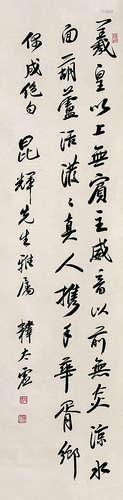 羲皇以上無賓主威音以前無炎涼水
面葫蘆活潑潑真人攜手華胥鄉
偶成絕句
昆輝先生雅屬 韓太虛